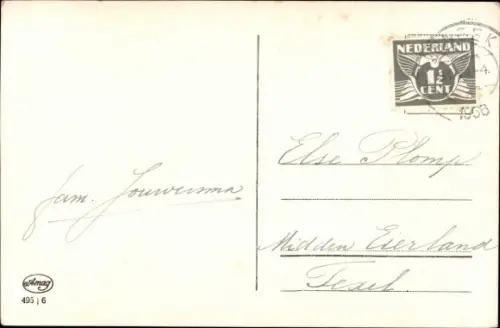 NEDERLAND
1½
CENT
1938
Else Plomp
fam. Jouwersma
Midden Eierland
Texel.
Amag
495 | 6